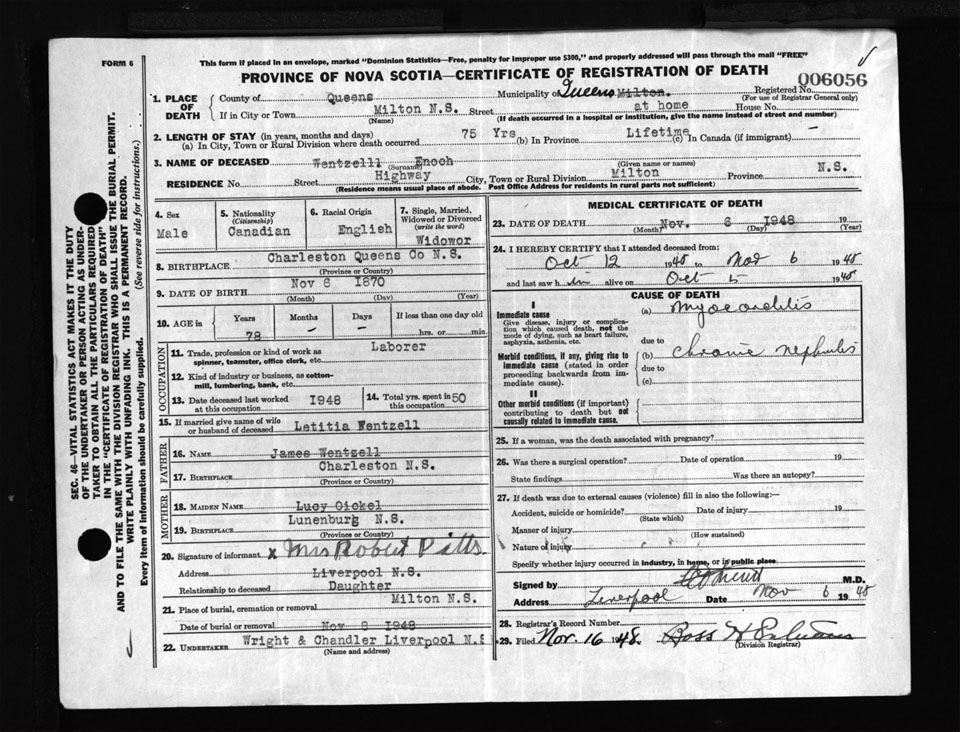 FORM 6
This form if placed in an envelope, marked "Dominion Statistics—Free, penalty for improper use $300," and properly addressed will pass through the mail "FREE"
PROVINCE OF NOVA SCOTIA—CERTIFICATE OF REGISTRATION OF DEATH
006056
1. PLACE OF DEATH County of Queens Municipality of Queens Milton. Registered No.
(For use of Registrar General only)
If in City or Town Milton N.S. Street at home House No.
(Name) (If death occurred in a hospital or institution, give the name instead of street and number)
2. LENGTH OF STAY (in years, months and days)
(a) In City, Town or Rural Division where death occurred 75 Yrs (b) In Province Lifetime (c) In Canada (if immigrant) —
3. NAME OF DECEASED Wentzelll Enoch
(Surname) (Given name or names)
RESIDENCE No. Street Highway City, Town or Rural Division Milton Province N.S.
(Residence means usual place of abode. Post Office Address for residents in rural parts not sufficient)
4. Sex Male
5. Nationality (Citizenship) Canadian
6. Racial Origin English
7. Single, Married, Widowed or Divorced (write the word) Widowor
8. BIRTHPLACE Charleston Queens Co N.S.
(Province or Country)
9. DATE OF BIRTH Nov 6 1870
(Month) (Day) (Year)
10. AGE in Years 78 Months – Days – If less than one day old hrs. or min.
OCCUPATION
11. Trade, profession or kind of work as spinner, teamster, office clerk, etc. Laborer
12. Kind of industry or business, as cotton-mill, lumbering, bank, etc.
13. Date deceased last worked at this occupation 1948
14. Total yrs. spent in this occupation 50
15. If married give name of wife or husband of deceased Letitia Wentzell
FATHER
16. NAME James Wentzell
17. BIRTHPLACE Charleston N.S.
(Province or Country)
MOTHER
18. MAIDEN NAME Lucy Oickel
19. BIRTHPLACE Lunenburg N.S.
(Province or Country)
20. Signature of informant x Mrs Robert Pitts
Address Liverpool N.S.
Relationship to deceased Daughter
21. Place of burial, cremation or removal Milton N.S.
Date of burial or removal Nov 8 1948
22. UNDERTAKER Wright & Chandler Liverpool N.S
(Name and address)
MEDICAL CERTIFICATE OF DEATH
23. DATE OF DEATH Nov. 6 1948 19
(Month) (Day) (Year)
24. I HEREBY CERTIFY that I attended deceased from:
Oct 12 1948 to Nov 6 1948
and last saw h im alive on Oct 5 1948
CAUSE OF DEATH
I
Immediate cause (a) Myocarditis
Give disease, injury or complication which caused death, not the mode of dying, such as heart failure, asphyxia, asthenia, etc.
due to
Morbid conditions, if any, giving rise to immediate cause (stated in order proceeding backwards from immediate cause).
(b) chronic nephritis
due to
(c)
II
Other morbid conditions (if important) contributing to death but not causally related to immediate cause.
25. If a woman, was the death associated with pregnancy?
26. Was there a surgical operation? Date of operation 19
State findings Was there an autopsy?
27. If death was due to external causes (violence) fill in also the following:—
Accident, suicide or homicide? Date of injury 19
(State which)
Manner of injury
(How sustained)
Nature of injury
Specify whether injury occurred in industry, in home, or in public place
Signed by M.D.
Address Liverpool Date Nov 6 1948
28. Registrar's Record Number
29. Filed Nov. 16 1948.
(Division Registrar)
SEC. 46—VITAL STATISTICS ACT MAKES IT THE DUTY
OF THE UNDERTAKER OR PERSON ACTING AS UNDER-
TAKER TO OBTAIN ALL THE PARTICULARS REQUIRED
IN THE "CERTIFICATE OF REGISTRATION OF DEATH"
AND TO FILE THE SAME WITH THE DIVISION REGISTRAR WHO SHALL ISSUE THE BURIAL PERMIT.
WRITE PLAINLY WITH UNFADING INK. THIS IS A PERMANENT RECORD.
Every item of information should be carefully supplied. (See reverse side for instructions.)